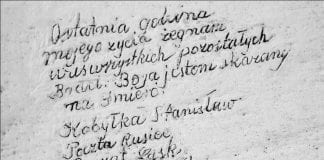 Ostatnia godzina
mojego życia żegnam
was wszystkich pozostałych
Braci. Boja jestem skazany
na śmierć.
Kobyłka Stanisław
Poczta Rusiec
Powiat Łask